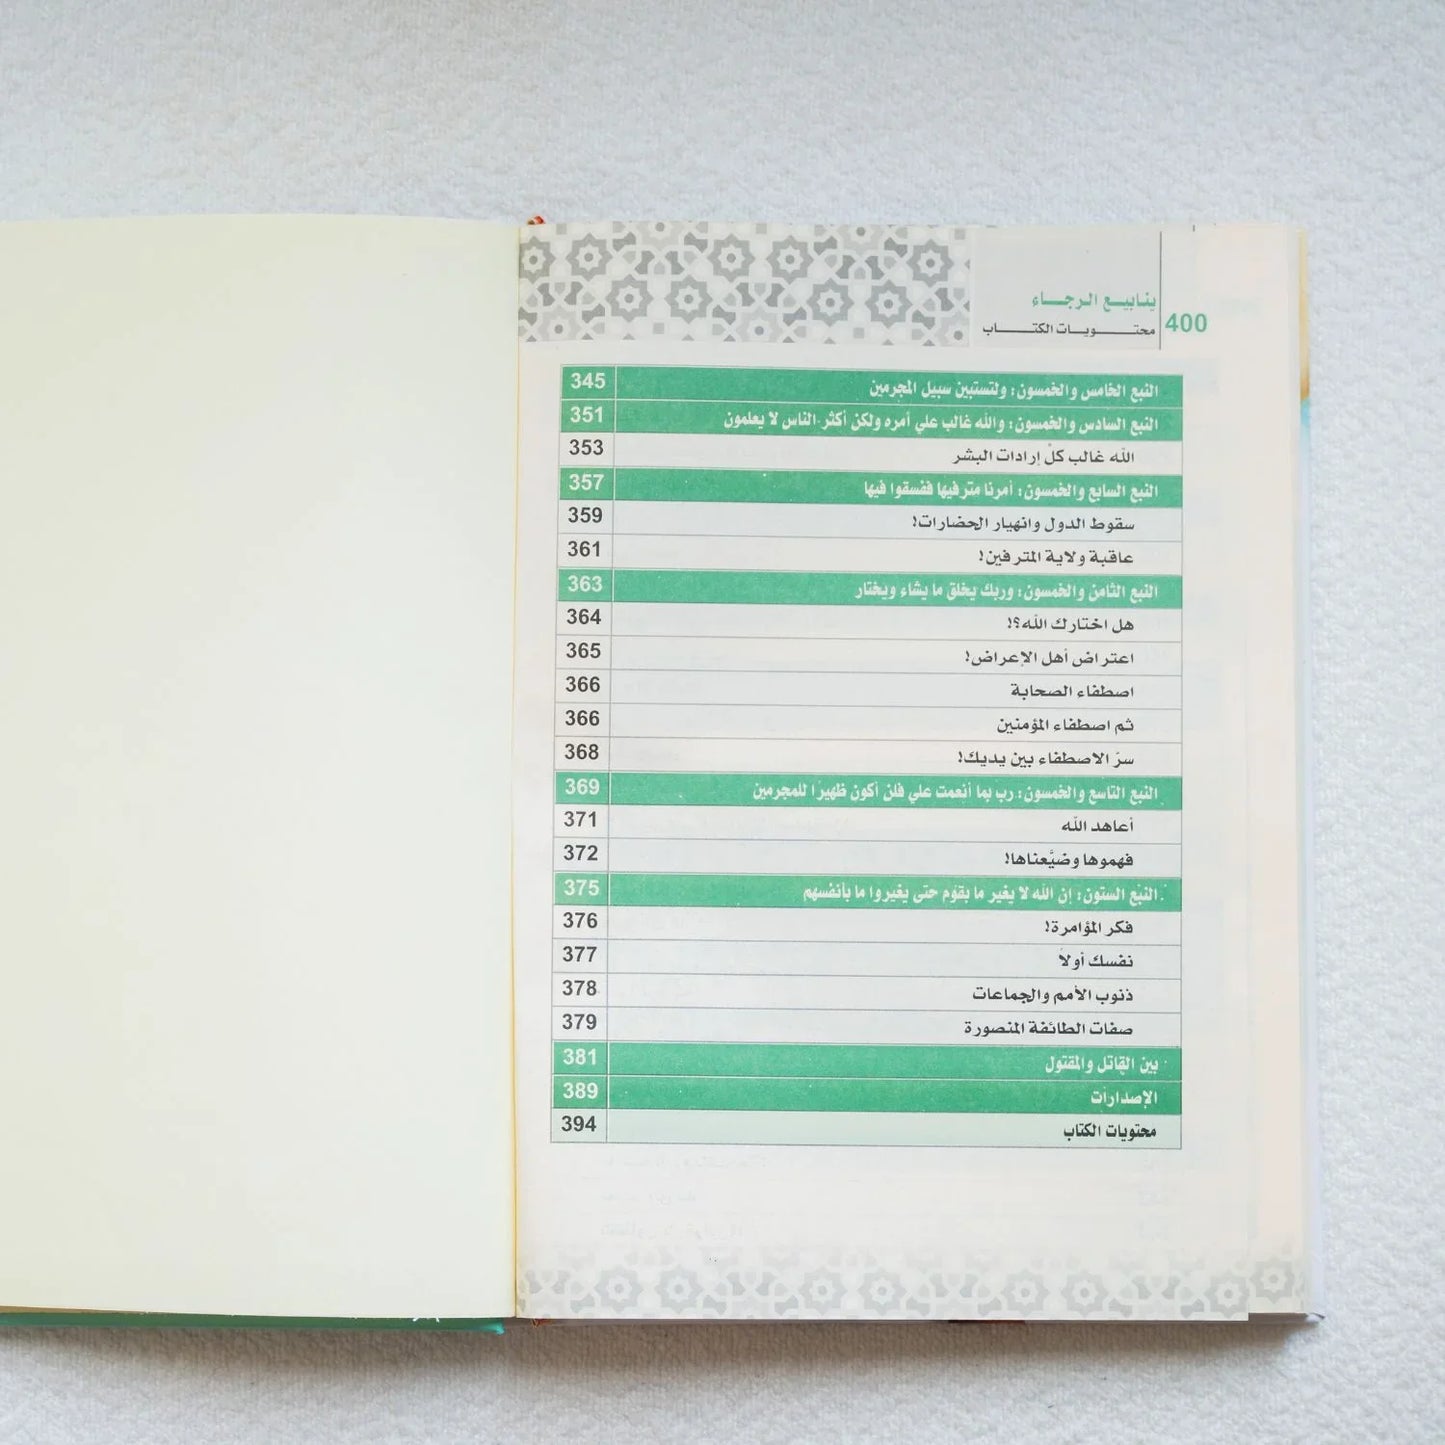 ينابيع الرجاء
400
محتويات الكتاب
النبع الخامس والخمسون: ولتستبين سبيل المجرمين 345
النبع السادس والخمسون: والله غالب علي أمره ولكن أكثر الناس لا يعلمون 351
الله غالب كلّ إرادات البشر 353
النبع السابع والخمسون: أمرنا مترفيها ففسقوا فيها 357
سقوط الدول وانهيار الحضارات! 359
عاقبة ولاية المترفين! 361
النبع الثامن والخمسون: وربك يخلق ما يشاء ويختار 363
هل اختارك الله؟! 364
اعتراض أهل الإعراض! 365
اصطفاء الصحابة 366
ثم اصطفاء المؤمنين 366
سرّ الاصطفاء بين يديك! 368
النبع التاسع والخمسون: رب بما أنعمت علي فلن أكون ظهيرًا للمجرمين 369
أعاهد الله 371
فهموها وضيَّعناها! 372
النبع الستون: إن الله لا يغير ما بقوم حتى يغيروا ما بأنفسهم 375
فكر المؤامرة! 376
نفسك أولاً 377
ذنوب الأمم والجماعات 378
صفات الطائفة المنصورة 379
بين القاتل والمقتول 381
الإصدارات 389
محتويات الكتاب 394